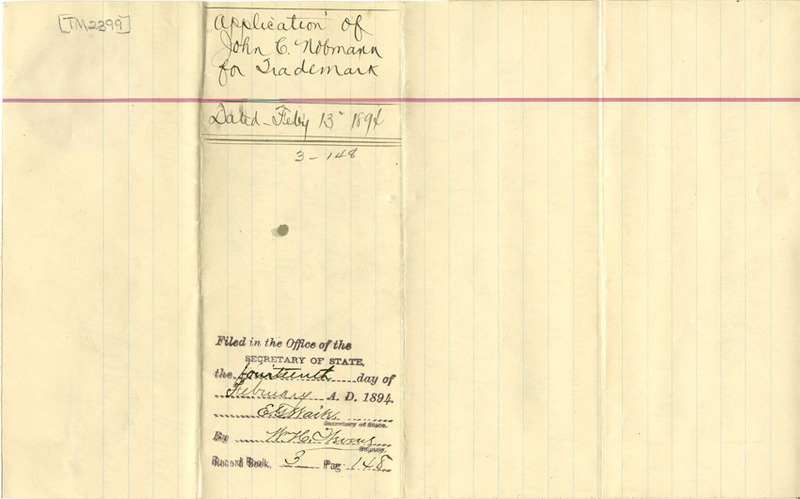 [TM2399]
Application of
John C. Nobmann
for Trademark
Dated Feby 13 1894
3-148
Filed in the Office of the
SECRETARY OF STATE,
the fourteenth day of
February A. D. 1894
E. G. Waite
Secretary of State.
By W. H.
Deputy.
Record Book 3 Pag 148